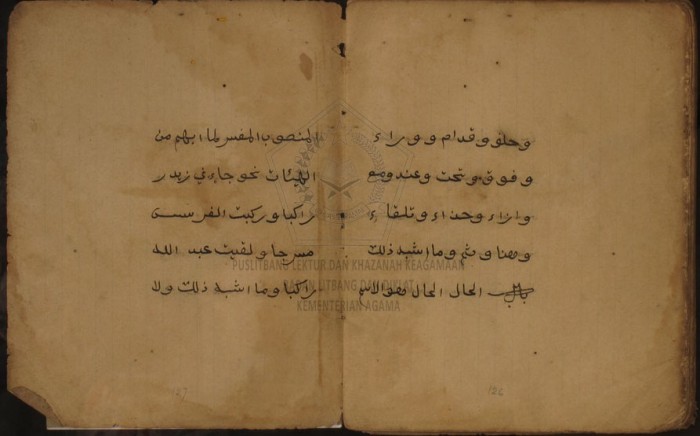 وحلو وقدام ووراء
وفوق وتحت وعند ومع
وازاء وحذاء وتلقاء
وهنا وثم وما اشبه ذلك
باب الحال الحال هو الاسم
126
المنصوب المفسر لما ابهم من
الهيئات نحو جاءني زيد
راكبا وركبت الفرس
مسرجا ولقيت عبد الله
راكبا وما اشبه ذلك ولا
127
PUSLITBANG LEKTUR DAN KHAZANAH KEAGAMAAN
BADAN LITBANG DAN DIKLAT
KEMENTERIAN AGAMA